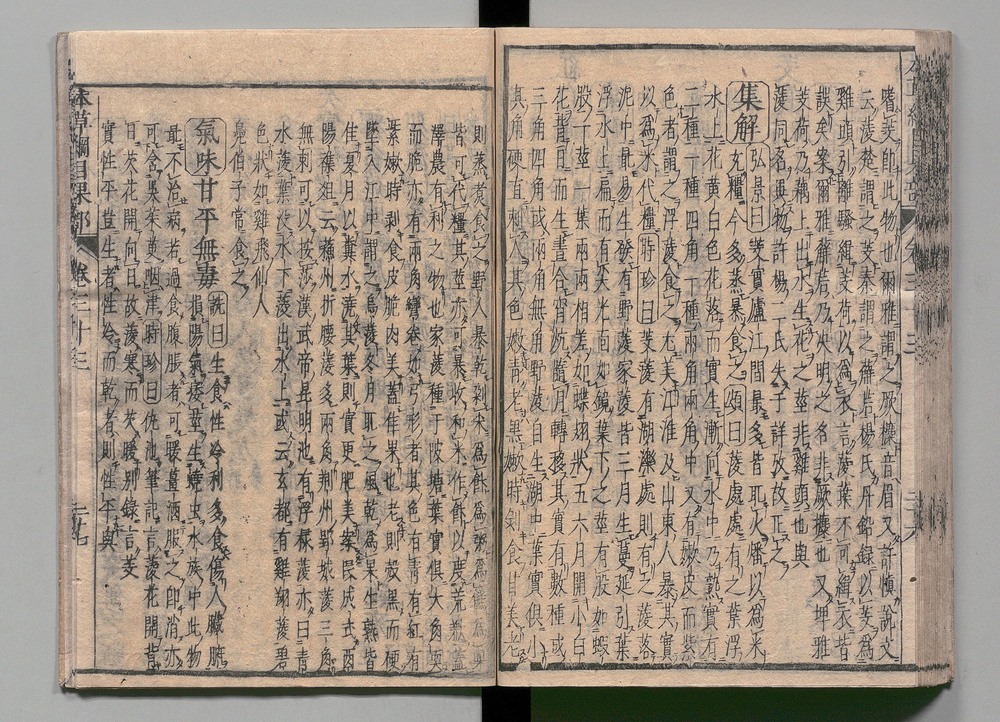 嗜芰即此物也爾雅謂之厥攈音眉又許慎說文
云蔆楚謂之芰秦謂之薢茩楊氏丹鉛錄以芰為
雞頭引離騷緝芰荷以為衣言蔆葉不可緝衣皆
誤矣案爾雅薢茩乃决明之名非厥攈也又埤雅
芰荷乃藕上出水生花之莖非雞頭也與
蔆同名異物許楊二氏失于詳攷故正之
集解 弘景曰芰實廬江間最多皆取火燔以為米
充糧今多蒸暴食之頌曰菱處處有之葉浮
水上花黄白色花落而實生漸向水中乃熟實有
二種一種四角一種兩角兩角中又有嫩皮而紫
色者謂之浮菱食之尤美江淮及山東人暴其實
以為米代糧時珍曰芰菱有湖濼處則有之菱落
泥中最易生發有野菱家菱皆三月生蔓延引葉
浮水上扁而有尖光面如鏡葉下之莖有股如蝦
股一莖一葉兩兩相差如蝶翅狀五六月開小白
花背日而生晝合宵炕隨月轉移其實有數種或
三角四角或兩角無角野菱自生湖中葉實俱小
其角硬直刺人其色嫩青老黑嫩時剝食甘美老
則蒸煮食之野人暴乾剁米為飯為粥為餻為果
皆可代糧其莖亦可暴收和米作飯以度荒歉蓋
澤農有利之物也家菱種于陂塘葉實俱大角耎
而脆亦有兩角彎卷如弓形者其色有青有紅有
紫嫩時剝食皮脆肉美蓋佳果也老則殼黑而硬
墜入江中謂之烏菱冬月取之風乾為果生熟皆
佳夏月以糞水澆其葉則實更肥美案段成式酉
陽雜俎云蘇州折腰菱多兩角荆州郢城菱三角
無刺可以按莎漢武帝昆明池有浮根菱亦曰青
水菱葉没水下菱出水上或云玄都有雞翔菱碧
色狀如雞飛仙人
鳬伯子常食之
氣味甘平無毒 詵曰生食性冷利多食傷人臟腑
損陽氣痿莖生蟯虫水族中此物
最不治病若過食腹脹者可暖薑酒服之即消亦
可含呉茱萸咽津時珍曰仇池筆記言菱花開背
日芡花開向日故菱寒而芡暖別錄言芰
實性平豈生者性冷而乾者則性平與
本草綱目果部 卷三十三 二十七